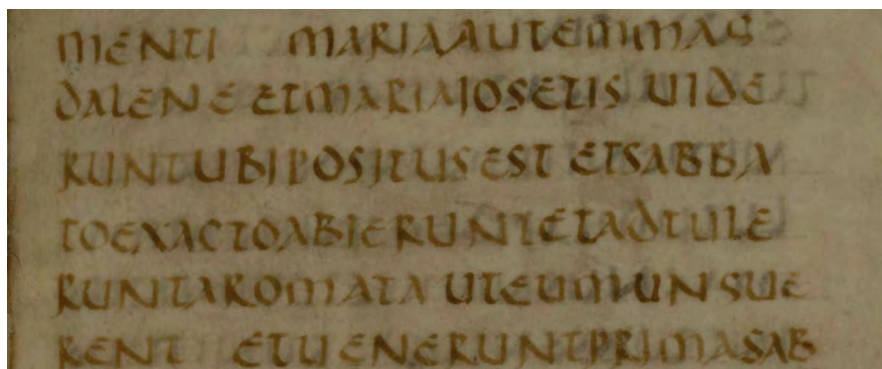 MENTI MARIAAUTEMMAG
DALENEETMARIAIOSETISUIDE
RUNTUBIPOSITUSEST ETSABBA
TOEXACTOABIERUNTETADTULE
RUNTAROMATAUTEUMUNGUE
RENT ETUENERUNTPRIMASAB